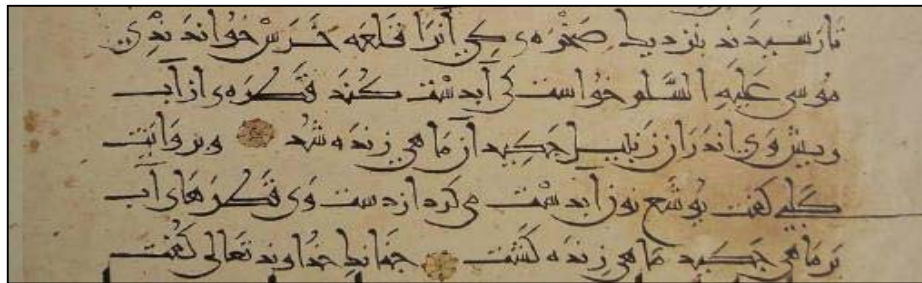 تا رسیدند بنزدیک صخره‌ی کی آنرا قلعه خرس خواندندی
موسی علیه السلم خواست کی آبدست کند قطره‌ی از آب
ریش وی اندران زنبیل چکید آن ماهی زنده شد و بروایت
کلبی گفت یوشع نون آبدست می کرد از دست وی قطرهای آب
بر ماهی چکید ماهی زنده گشت چنانک خداوند تعالی گفت